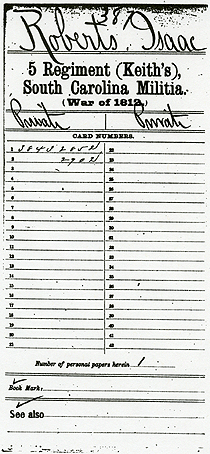 387
Roberts, Isaac
5 Regiment (Keith's),
South Carolina Militia.
(War of 1812.)
Private Private
CARD NUMBERS.
1 3843 2852 22
2 2902 23
3 24
4 25
5 26
6 27
7 28
8 29
9 30
10 31
11 32
12 33
13 34
14 35
15 36
16 37
17 38
18 39
19 40
20 41
21 42
Number of personal papers herein 1
Book Mark:
See also